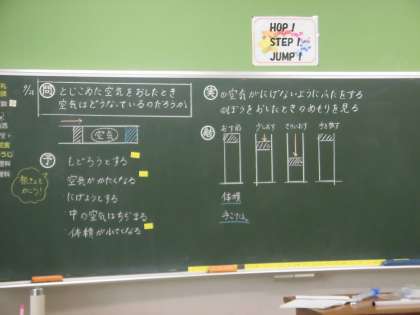 HOP!
STEP!
JUMP!
問 とじこめた空気をおしたとき
空気はどうなっているのだろうか
空気
予
もどろうとする
空気がかたくなる
にげようとする
中の空気はちぢまる
体積が小さくなる
実 ①空気がにげないようにふたをする
②ぼうをおしたときのめもりを見る
おす前 少しおす 手をはなす
体積
手ごたえ